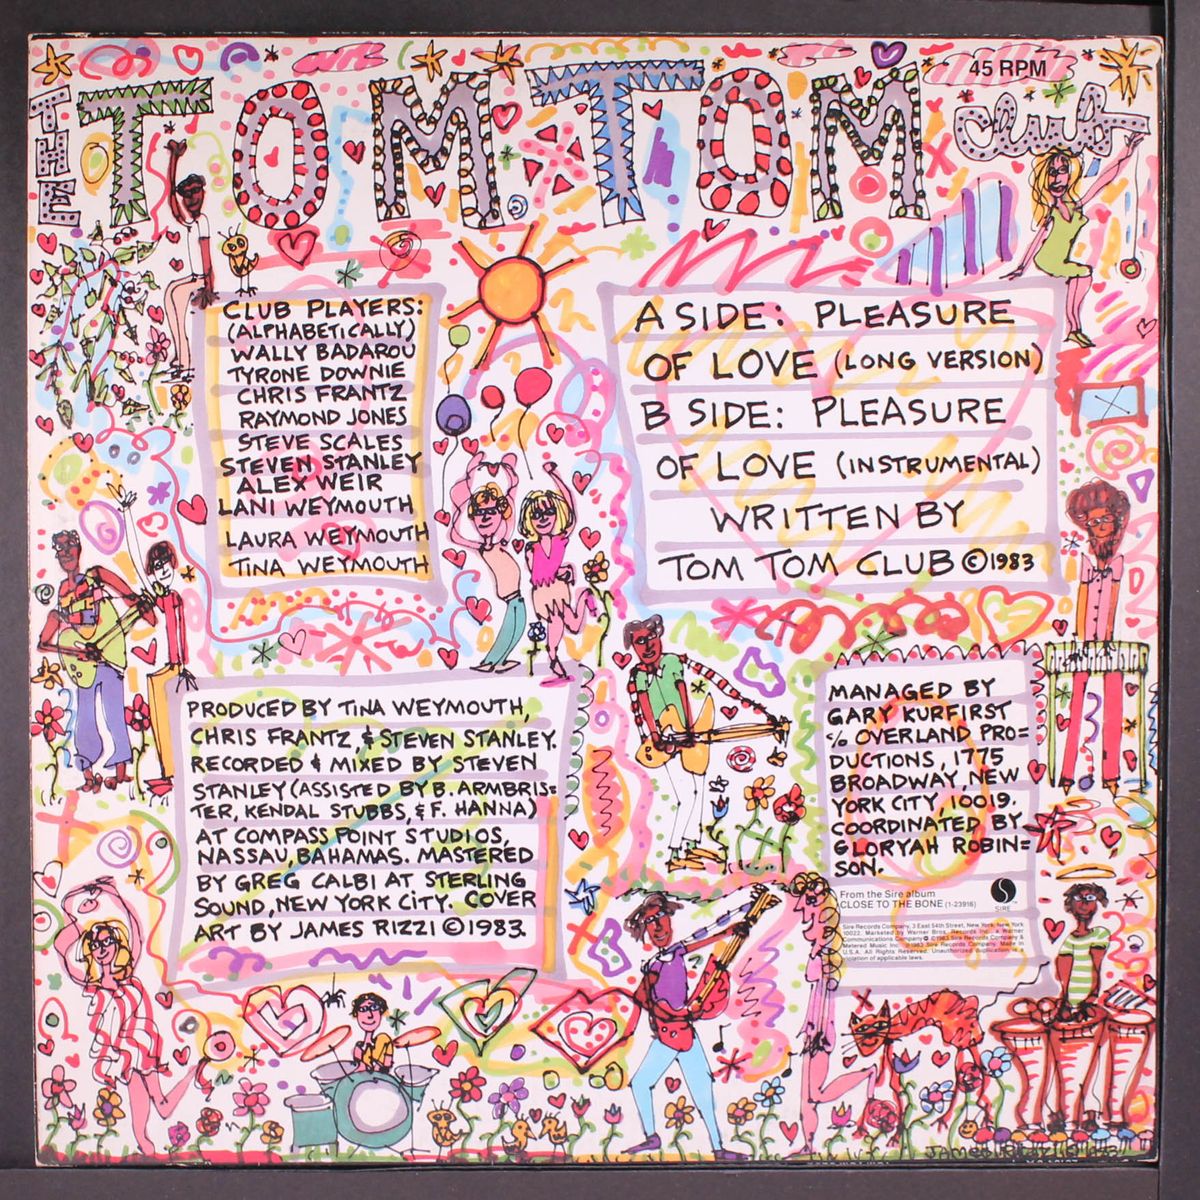 THE TOM TOM club
45 RPM
CLUB PLAYERS:
(ALPHABETICALLY)
WALLY BADAROU
TYRONE DOWNIE
CHRIS FRANTZ
RAYMOND JONES
STEVE SCALES
STEVEN STANLEY
ALEX WEIR
LANI WEYMOUTH
LAURA WEYMOUTH
TINA WEYMOUTH
A SIDE: PLEASURE
OF LOVE (LONG VERSION)
B SIDE: PLEASURE
OF LOVE (INSTRUMENTAL)
WRITTEN BY
TOM TOM CLUB ©1983
PRODUCED BY TINA WEYMOUTH,
CHRIS FRANTZ, & STEVEN STANLEY.
RECORDED & MIXED BY STEVEN
STANLEY (ASSISTED BY B. ARMBRIS=
TER, KENDAL STUBBS, & F. HANNA)
AT COMPASS POINT STUDIOS,
NASSAU, BAHAMAS. MASTERED
BY GREG CALBI AT STERLING
SOUND, NEW YORK CITY. COVER
ART BY JAMES RIZZI ©1983.
MANAGED BY
GARY KURFIRST
% OVERLAND PRO=
DUCTIONS, 1775
BROADWAY, NEW
YORK CITY, 10019.
COORDINATED BY
GLORYAH ROBIN=
SON.
From the Sire album
CLOSE TO THE BONE (1-23916)
SIRE
Sire Records Company, 3 East 54th Street, New York, New York
10022. Marketed by Warner Bros. Records Inc., a Warner
Communications Company ℗ © 1983 Sire Records Company &
Metered Music Inc. ©1983 Sire Records Company. Made in
U.S.A. All Rights Reserved. Unauthorized duplication is a
violation of applicable laws.
JAMES RIZZI © 1983